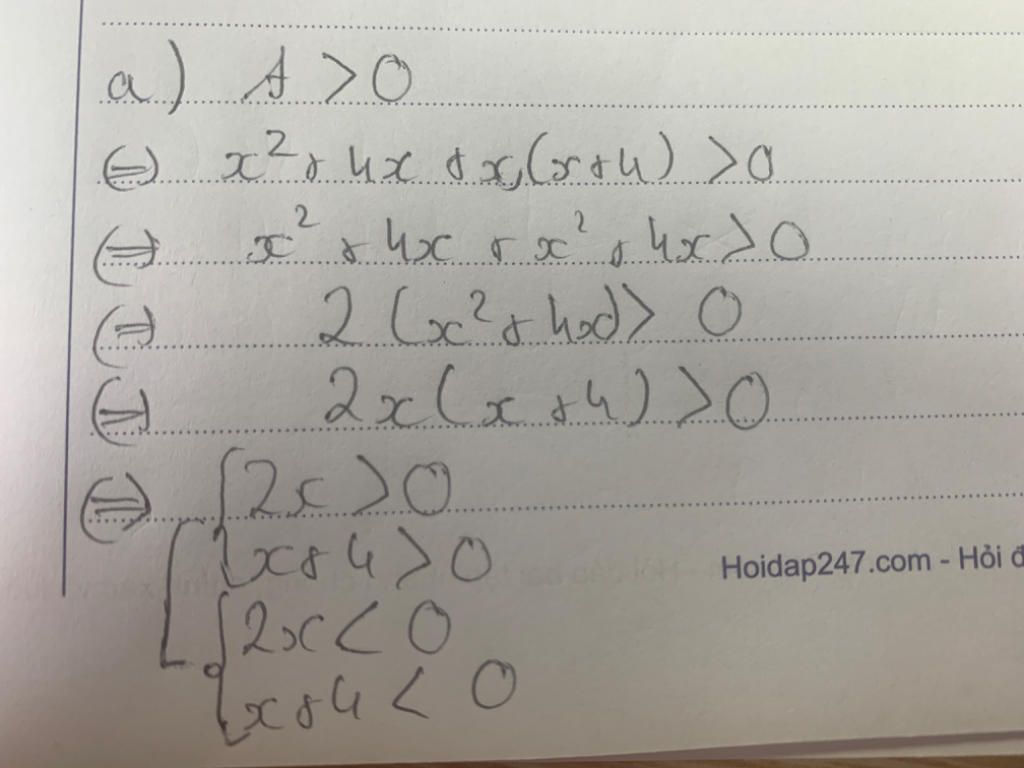 a) A > 0
⇔ x² + 4x + x(x+4) > 0
⇔ x² + 4x + x² + 4x > 0
⇔ 2(x² + 4x) > 0
⇔ 2x(x + 4) > 0
⇔ [ { 2x > 0
{ x + 4 > 0
{ 2x < 0
{ x + 4 < 0
Hoidap247.com - Hỏi đ